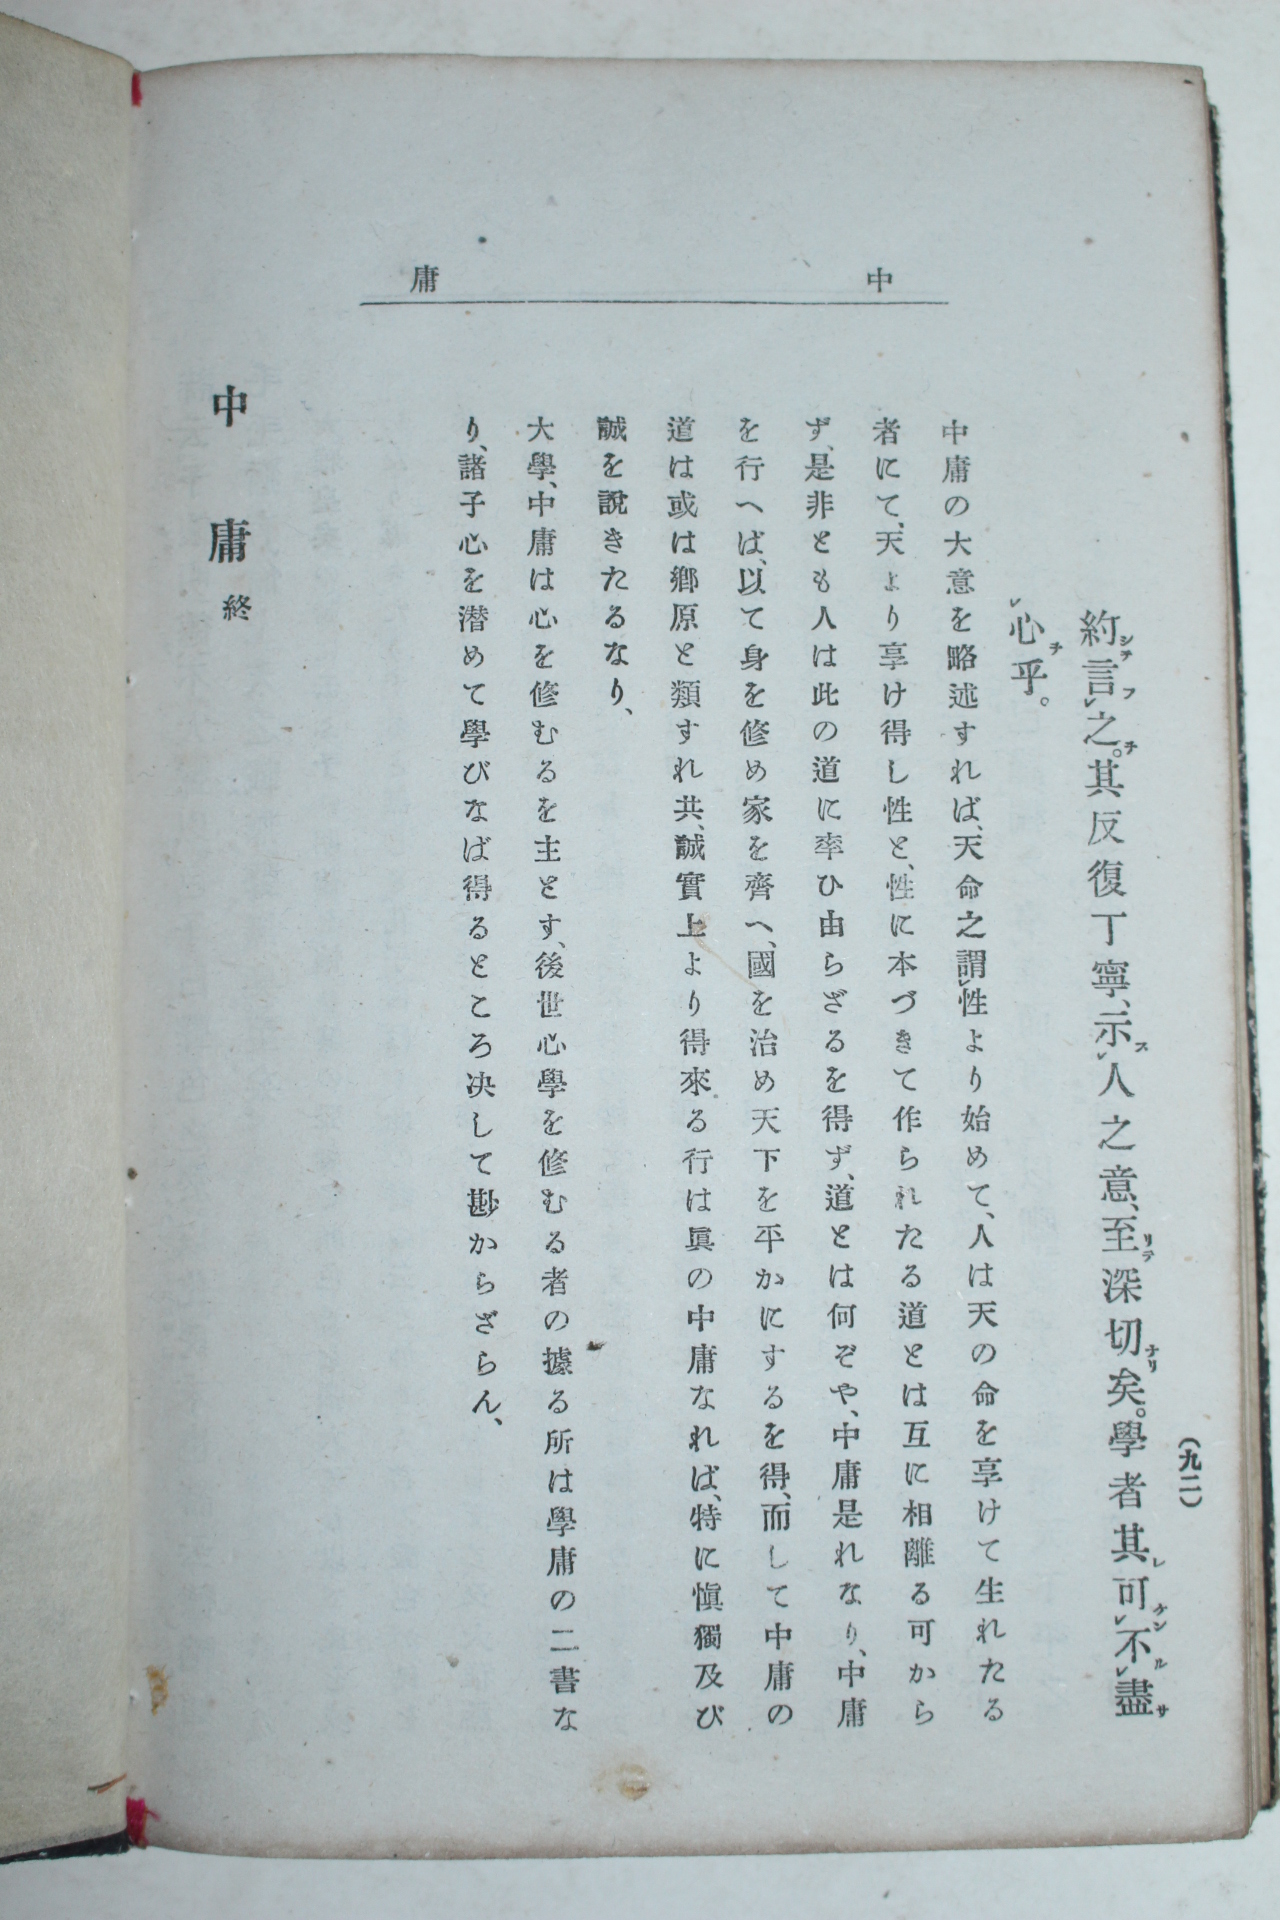 (九二)
中庸
約言之。其反復丁寧、示人之意、至深切矣。學者其可不盡
心乎。
中庸の大意を略述すれば、天命之謂性より始めて、人は天の命を享けて生れたる
者にて、天より享け得し性と、性に本づきて作られたる道とは互に相離る可から
ず、是非とも人は此の道に率ひ由らざるを得ず、道とは何ぞや、中庸是れなり、中庸
を行へば、以て身を修め家を齊へ、國を治め天下を平かにするを得、而して中庸の
道は或は鄕原と類すれ共、誠實上より得來る行は眞の中庸なれば、特に愼獨及び
誠を說きたるなり、
大學、中庸は心を修むるを主とす、後世心學を修むる者の據る所は學庸の二書な
り、諸子心を潜めて學びなば得るところ决して尠からざらん、
中庸終